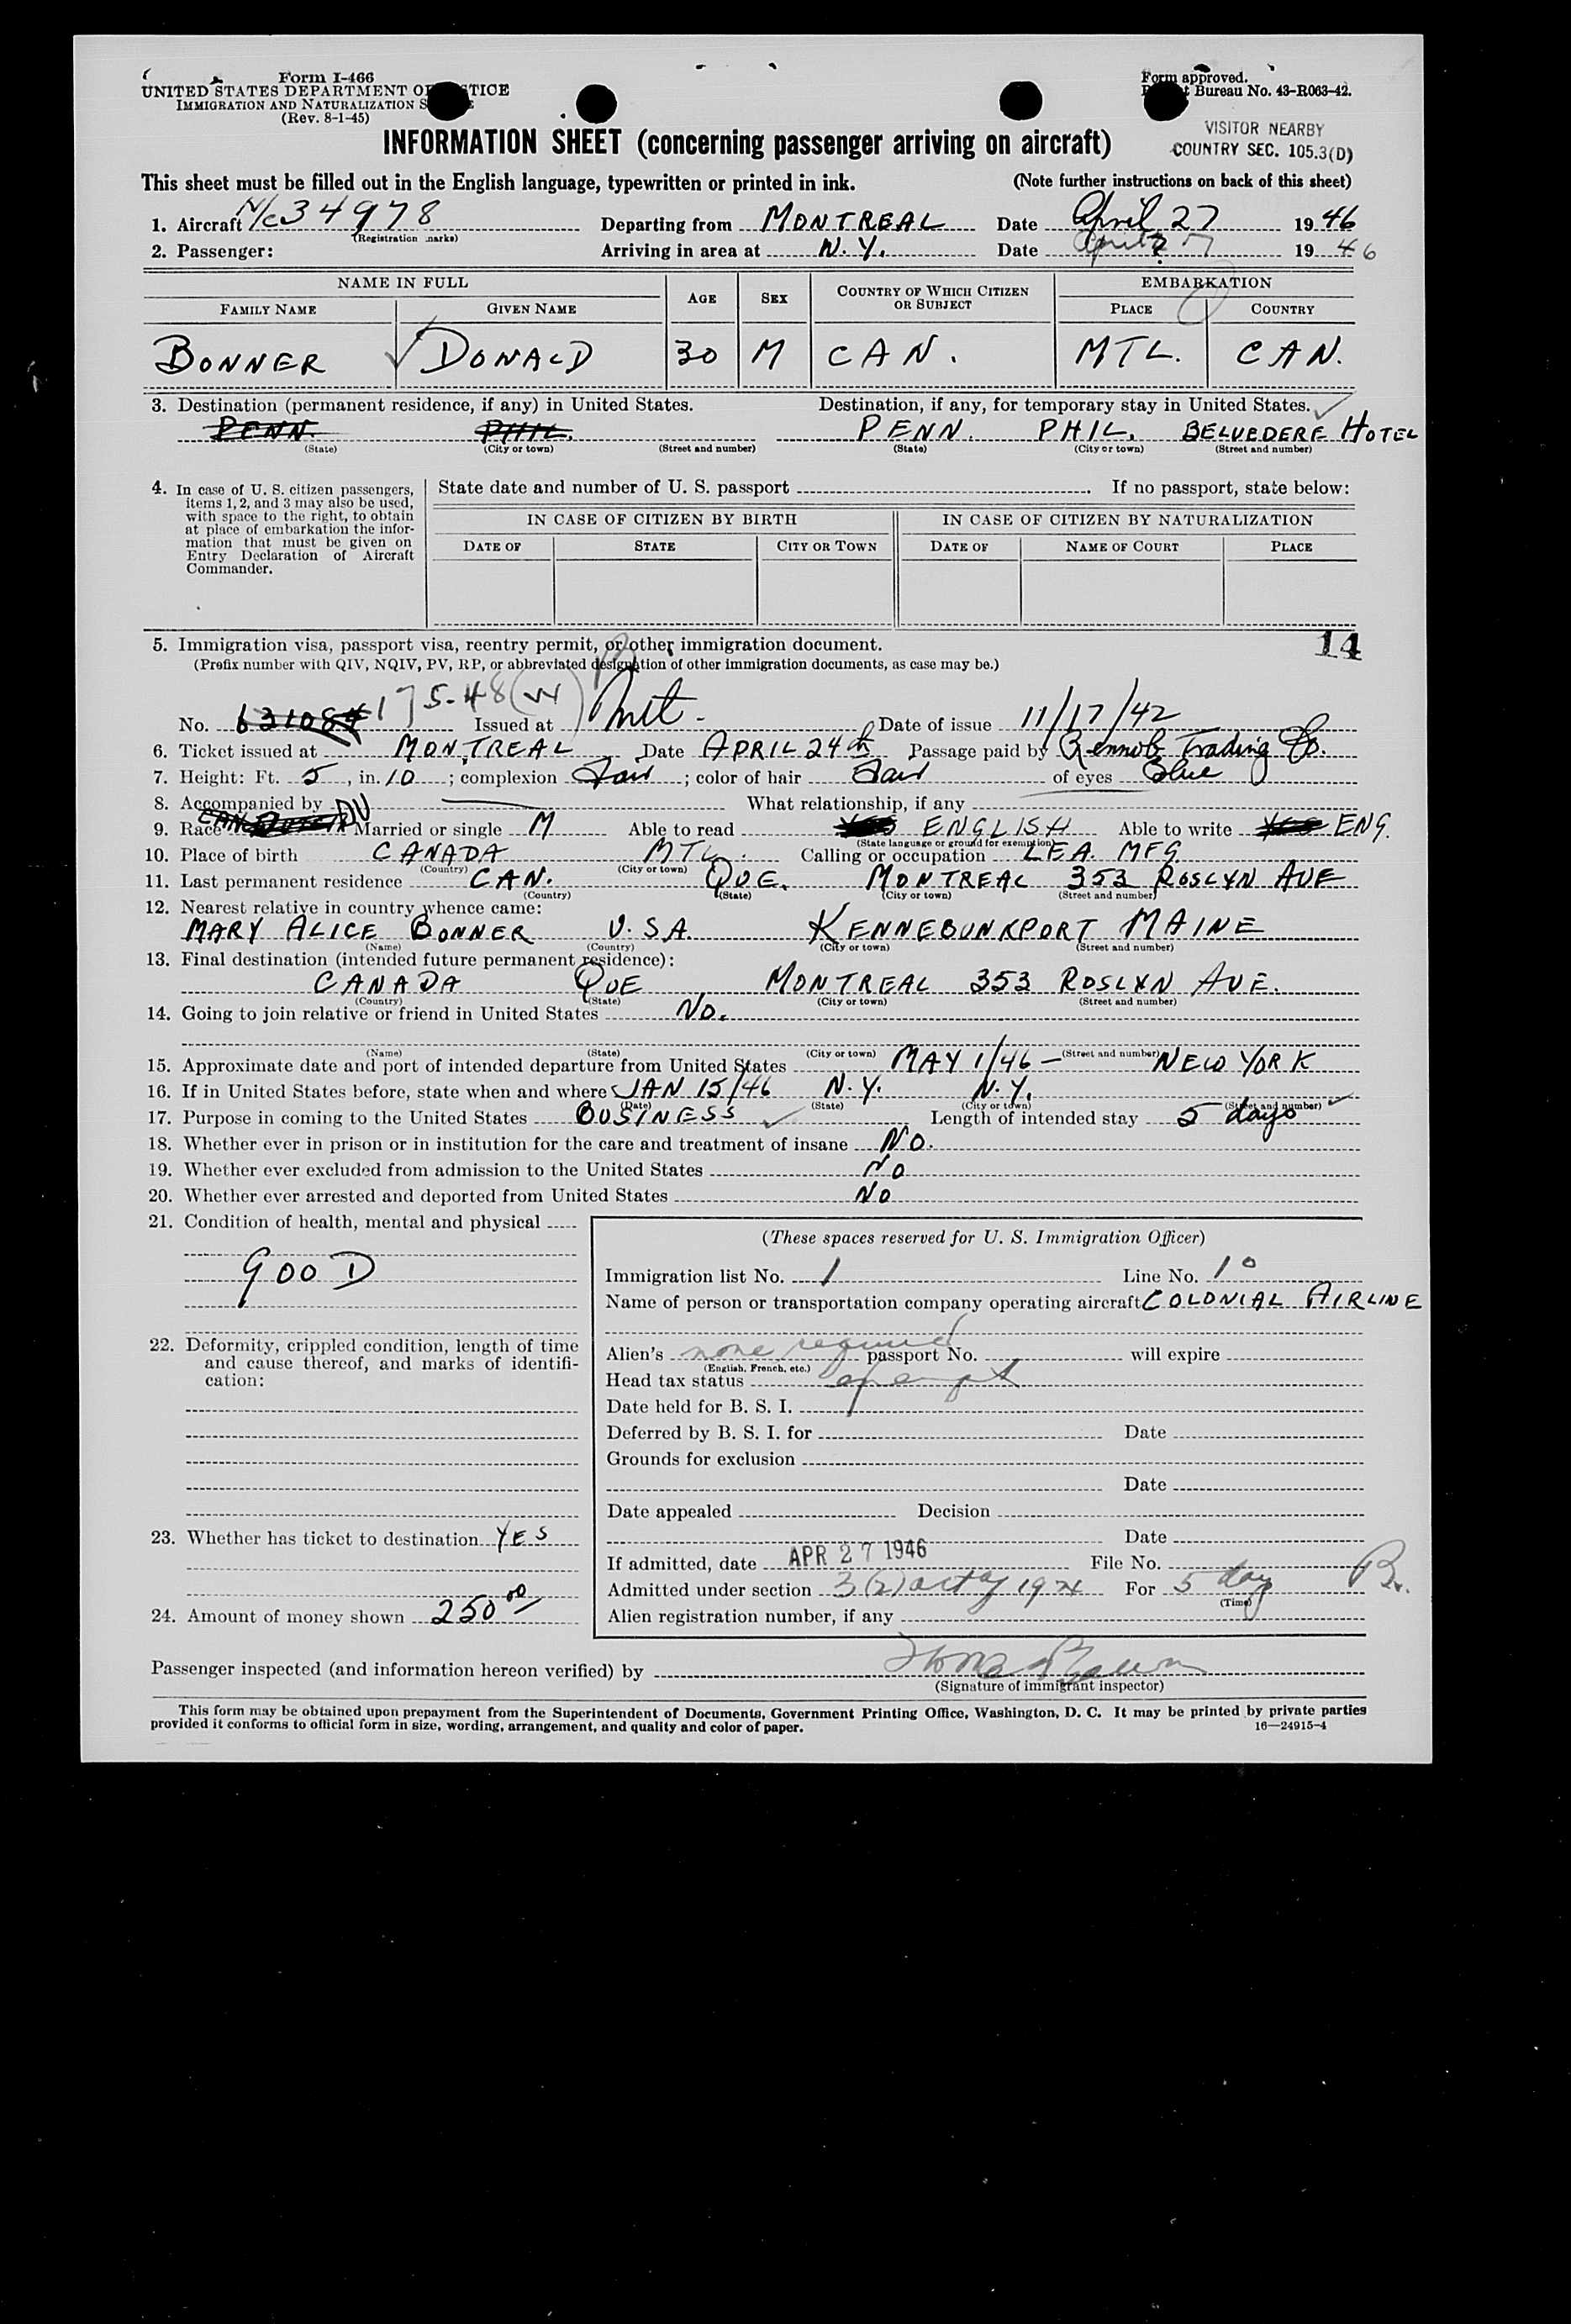 Form I-466
UNITED STATES DEPARTMENT OF JUSTICE
IMMIGRATION AND NATURALIZATION S
(Rev. 8-1-45)
Form approved.
Bureau No. 43-R063-42.
VISITOR NEARBY
COUNTRY SEC. 105.3(D)
INFORMATION SHEET (concerning passenger arriving on aircraft)
This sheet must be filled out in the English language, typewritten or printed in ink. (Note further instructions on back of this sheet)
1. Aircraft N/c 34978 Departing from MONTREAL Date April 27 1946
(Registration marks)
2. Passenger: Arriving in area at N.Y. Date April 27 1946
NAME IN FULL AGE SEX COUNTRY OF WHICH CITIZEN OR SUBJECT EMBARKATION
FAMILY NAME GIVEN NAME PLACE COUNTRY
BONNER DONALD 30 M CAN. MTL. CAN.
3. Destination (permanent residence, if any) in United States. Destination, if any, for temporary stay in United States.
PENN. PHIL. PENN. PHIL. BELVEDERE HOTEL
(State) (City or town) (Street and number) (State) (City or town) (Street and number)
4. In case of U. S. citizen passengers,
items 1, 2, and 3 may also be used,
with space to the right, to obtain
at place of embarkation the infor-
mation that must be given on
Entry Declaration of Aircraft
Commander.
State date and number of U. S. passport . If no passport, state below:
IN CASE OF CITIZEN BY BIRTH IN CASE OF CITIZEN BY NATURALIZATION
DATE OF STATE CITY OR TOWN DATE OF NAME OF COURT PLACE
5. Immigration visa, passport visa, reentry permit, or other immigration document. 14
(Prefix number with QIV, NQIV, PV, RP, or abbreviated designation of other immigration documents, as case may be.)
No. 631084 175-48 (W) Issued at Mtl. Date of issue 11/17/42
6. Ticket issued at MONTREAL Date APRIL 24th Passage paid by Rennob Trading Co.
7. Height: Ft. 5, in. 10; complexion Fair; color of hair Fair of eyes Blue
8. Accompanied by What relationship, if any
9. Race CAN Married or single M Able to read YES ENGLISH Able to write YES ENG.
(State language or ground for exemption)
10. Place of birth CANADA MTL. Calling or occupation LEA. MFG.
(Country) (City or town)
11. Last permanent residence CAN. QUE. MONTREAL 353 ROSLYN AVE
(Country) (State) (City or town) (Street and number)
12. Nearest relative in country whence came:
MARY ALICE BONNER U.S.A. KENNEBUNKPORT MAINE
(Name) (Country) (City or town) (Street and number)
13. Final destination (intended future permanent residence):
CANADA QUE MONTREAL 353 ROSLYN AVE.
(Country) (State) (City or town) (Street and number)
14. Going to join relative or friend in United States NO.
(Name) (State) (City or town) (Street and number)
15. Approximate date and port of intended departure from United States MAY 1/46 — NEW YORK
16. If in United States before, state when and where JAN 15/46 N.Y. N.Y.
(Date) (State) (City or town) (Street and number)
17. Purpose in coming to the United States BUSINESS Length of intended stay 5 days
18. Whether ever in prison or in institution for the care and treatment of insane NO.
19. Whether ever excluded from admission to the United States NO
20. Whether ever arrested and deported from United States NO
21. Condition of health, mental and physical
GOOD
22. Deformity, crippled condition, length of time
and cause thereof, and marks of identifi-
cation:
23. Whether has ticket to destination YES
24. Amount of money shown 250.00
(These spaces reserved for U. S. Immigration Officer)
Immigration list No. 1 Line No. 10
Name of person or transportation company operating aircraft COLONIAL AIRLINE
Alien's none required passport No. will expire
(English, French, etc.)
Head tax status exempt
Date held for B. S. I.
Deferred by B. S. I. for Date
Grounds for exclusion
Date
Date appealed Decision
Date
If admitted, date APR 27 1946 File No.
Admitted under section 3(2) act of 1924 For 5 day
(Time)
Alien registration number, if any
Passenger inspected (and information hereon verified) by
(Signature of immigrant inspector)
This form may be obtained upon prepayment from the Superintendent of Documents, Government Printing Office, Washington, D. C. It may be printed by private parties
provided it conforms to official form in size, wording, arrangement, and quality and color of paper. 16—24915-4